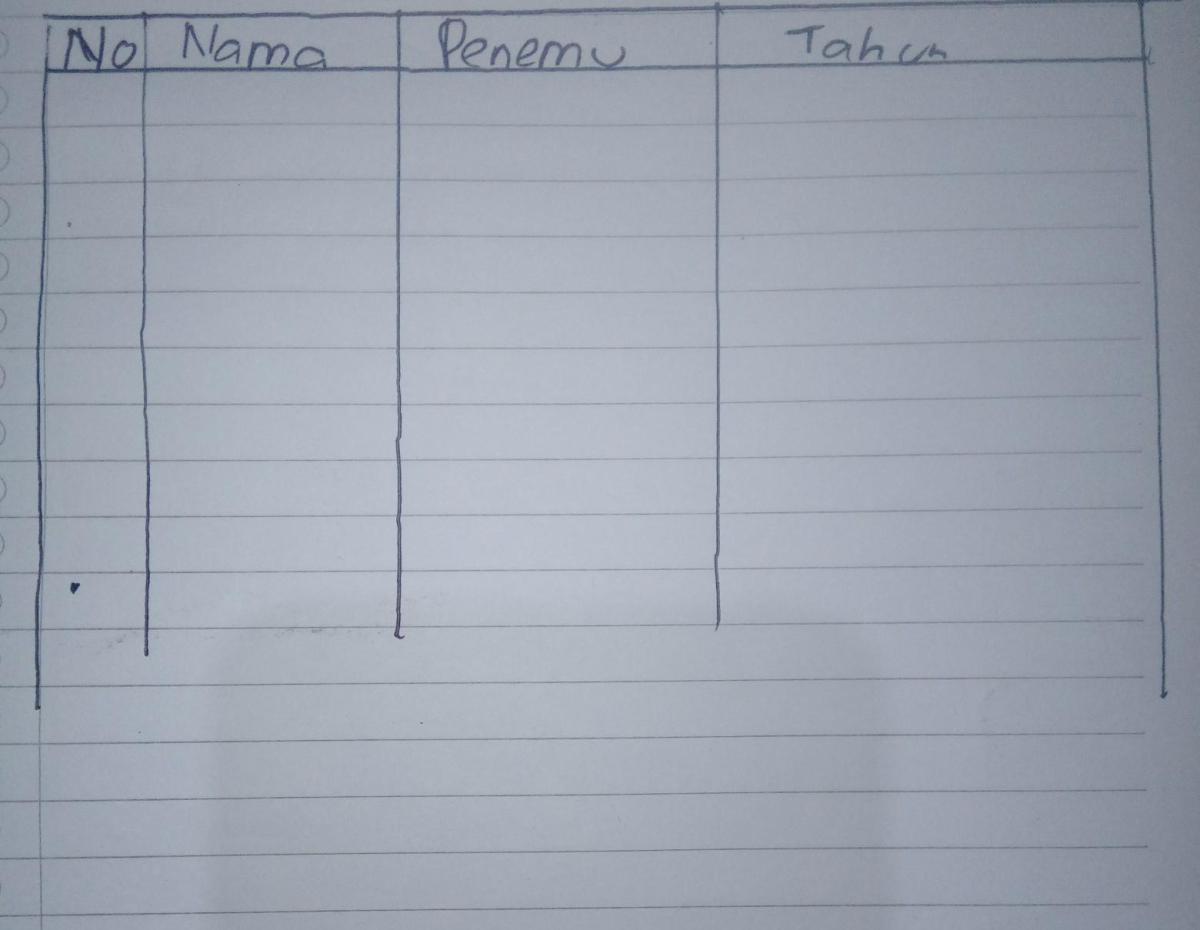 No Nama Penemu Tahun